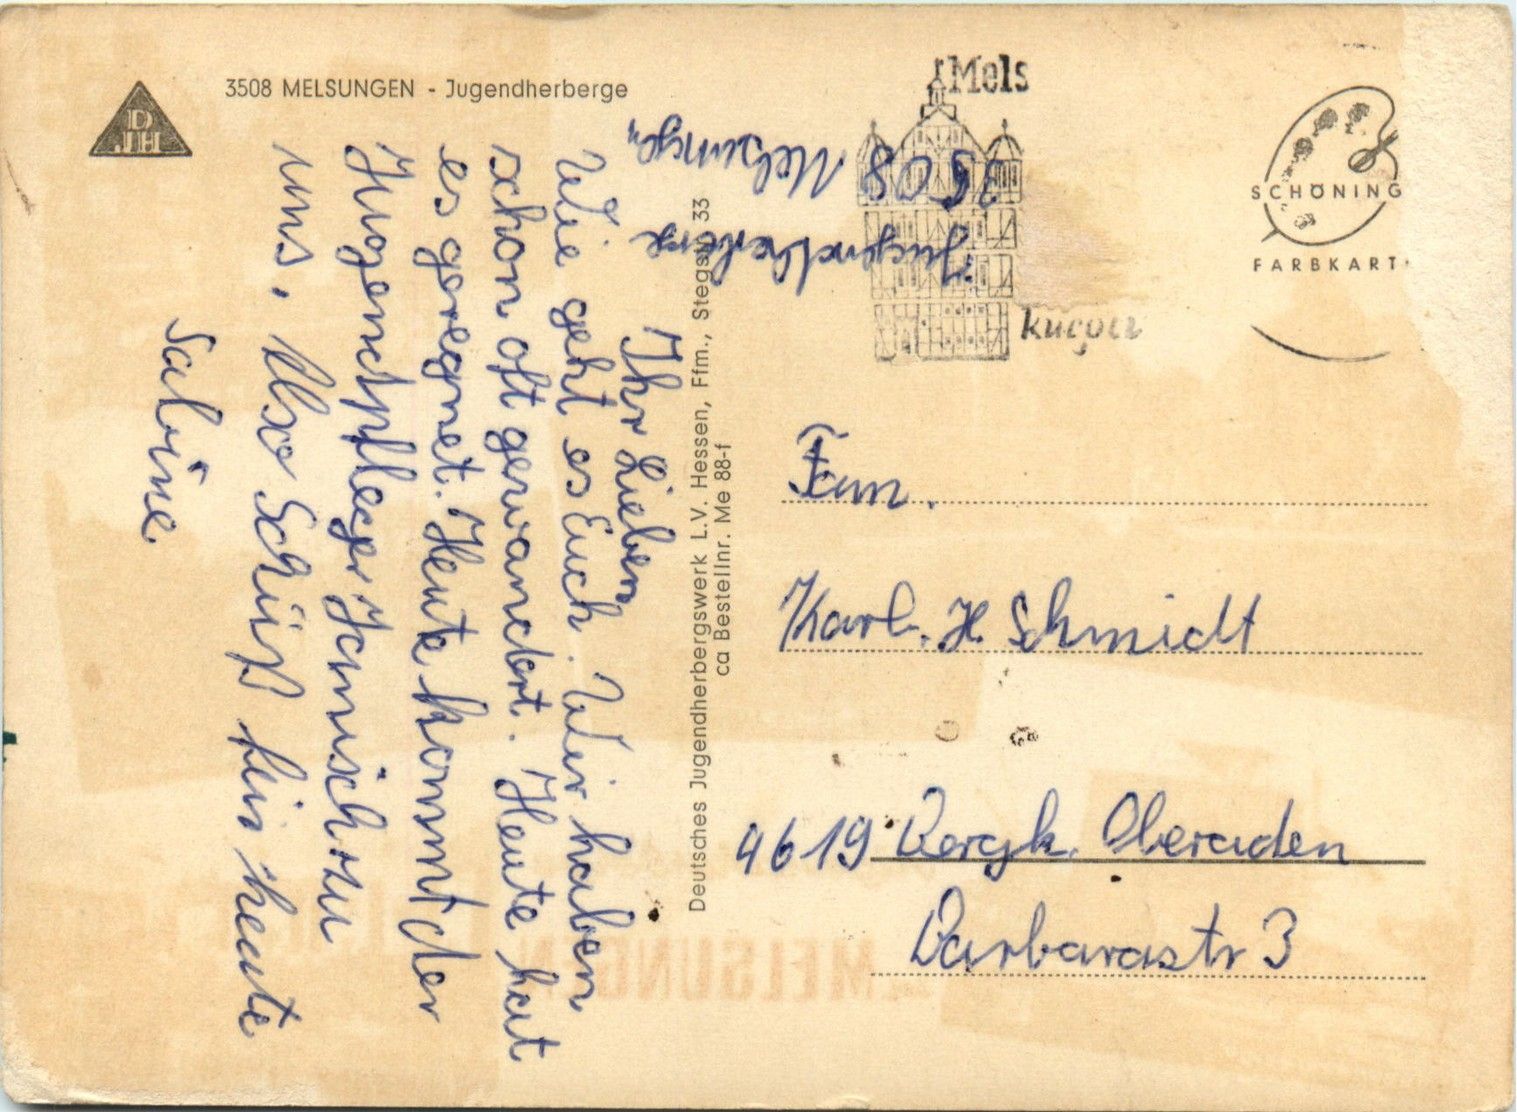 DJH
3508 MELSUNGEN - Jugendherberge
Mels
SCHÖNING
FARBKART
Jugendherberge
3508 Melsungen
Ihr Lieben
Wie geht es Euch. Wir haben
schon oft gewandert. Heute hat
es geregnet. Heute kommt der
Jugendpfleger zu
uns. Also Schüß bis heute
Sabine
Deutsches Jugendherbergswerk L.V. Hessen, Ffm., Stegstr. 33
ca Bestellnr. Me 88-f
Fam.
Karl. H. Schmidt
4619 Bergk. Oberaden
Barbarastr 3
MELSUNGEN